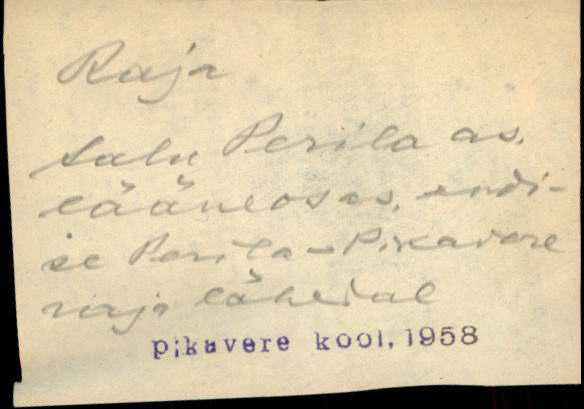 Raja
talu Perila as.
lääneosas, endi-
se Perila-Pikavere
raja lähedal
Pikavere kool, 1958